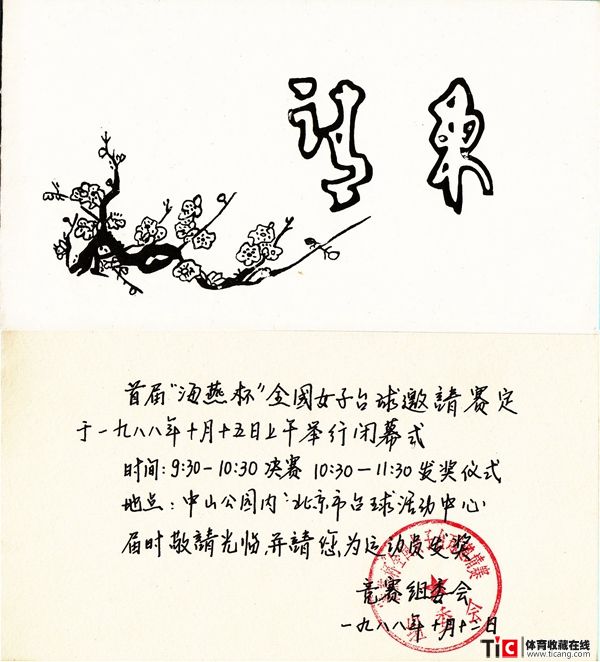 请柬
首届"海燕杯"全國女子台球邀請赛定
于一九八八年十月十五日上午举行闭幕式
时间:9:30-10:30 决赛 10:30-11:30 发奖仪式
地点:中山公园内"北京市台球活动中心"
届时敬請光临,并請您为运动员发奖
竞赛组委会
一九八八年十月十二日
TiC 体育收藏在线
www.ticang.com